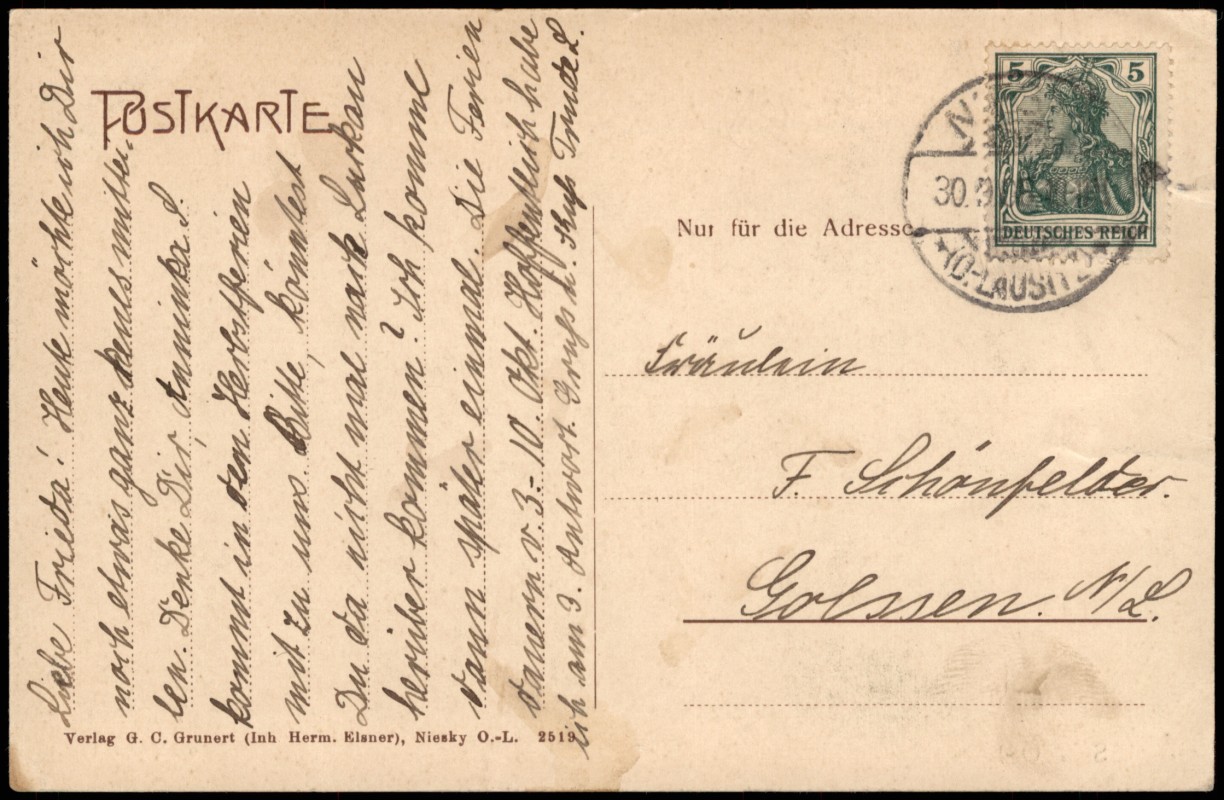 POSTKARTE
Liebe Frieda! Heute möchte ich Dir
noch etwas ganz kurz mittei-
len. Denke Dir, Anninka L.
kommt in den Herbstferien
mit zu uns. Bitte, könntest
Du da nicht mal nach Luckau
herüber kommen? Ich komme
dann später einmal. Die Ferien
dauern v. 3.-10. Okt. Hoffentlich habe
ich am 3. Antwort. Gruß u. Kuß Trude L.
Verlag G. C. Grunert (Inh Herm. Elsner), Niesky O.-L. 2519
5 5
DEUTSCHES REICH
30.9.
(O.-LAUSITZ
Nur für die Adresse
Fräulein
F. Schönfelder.
Golssen. N/L.